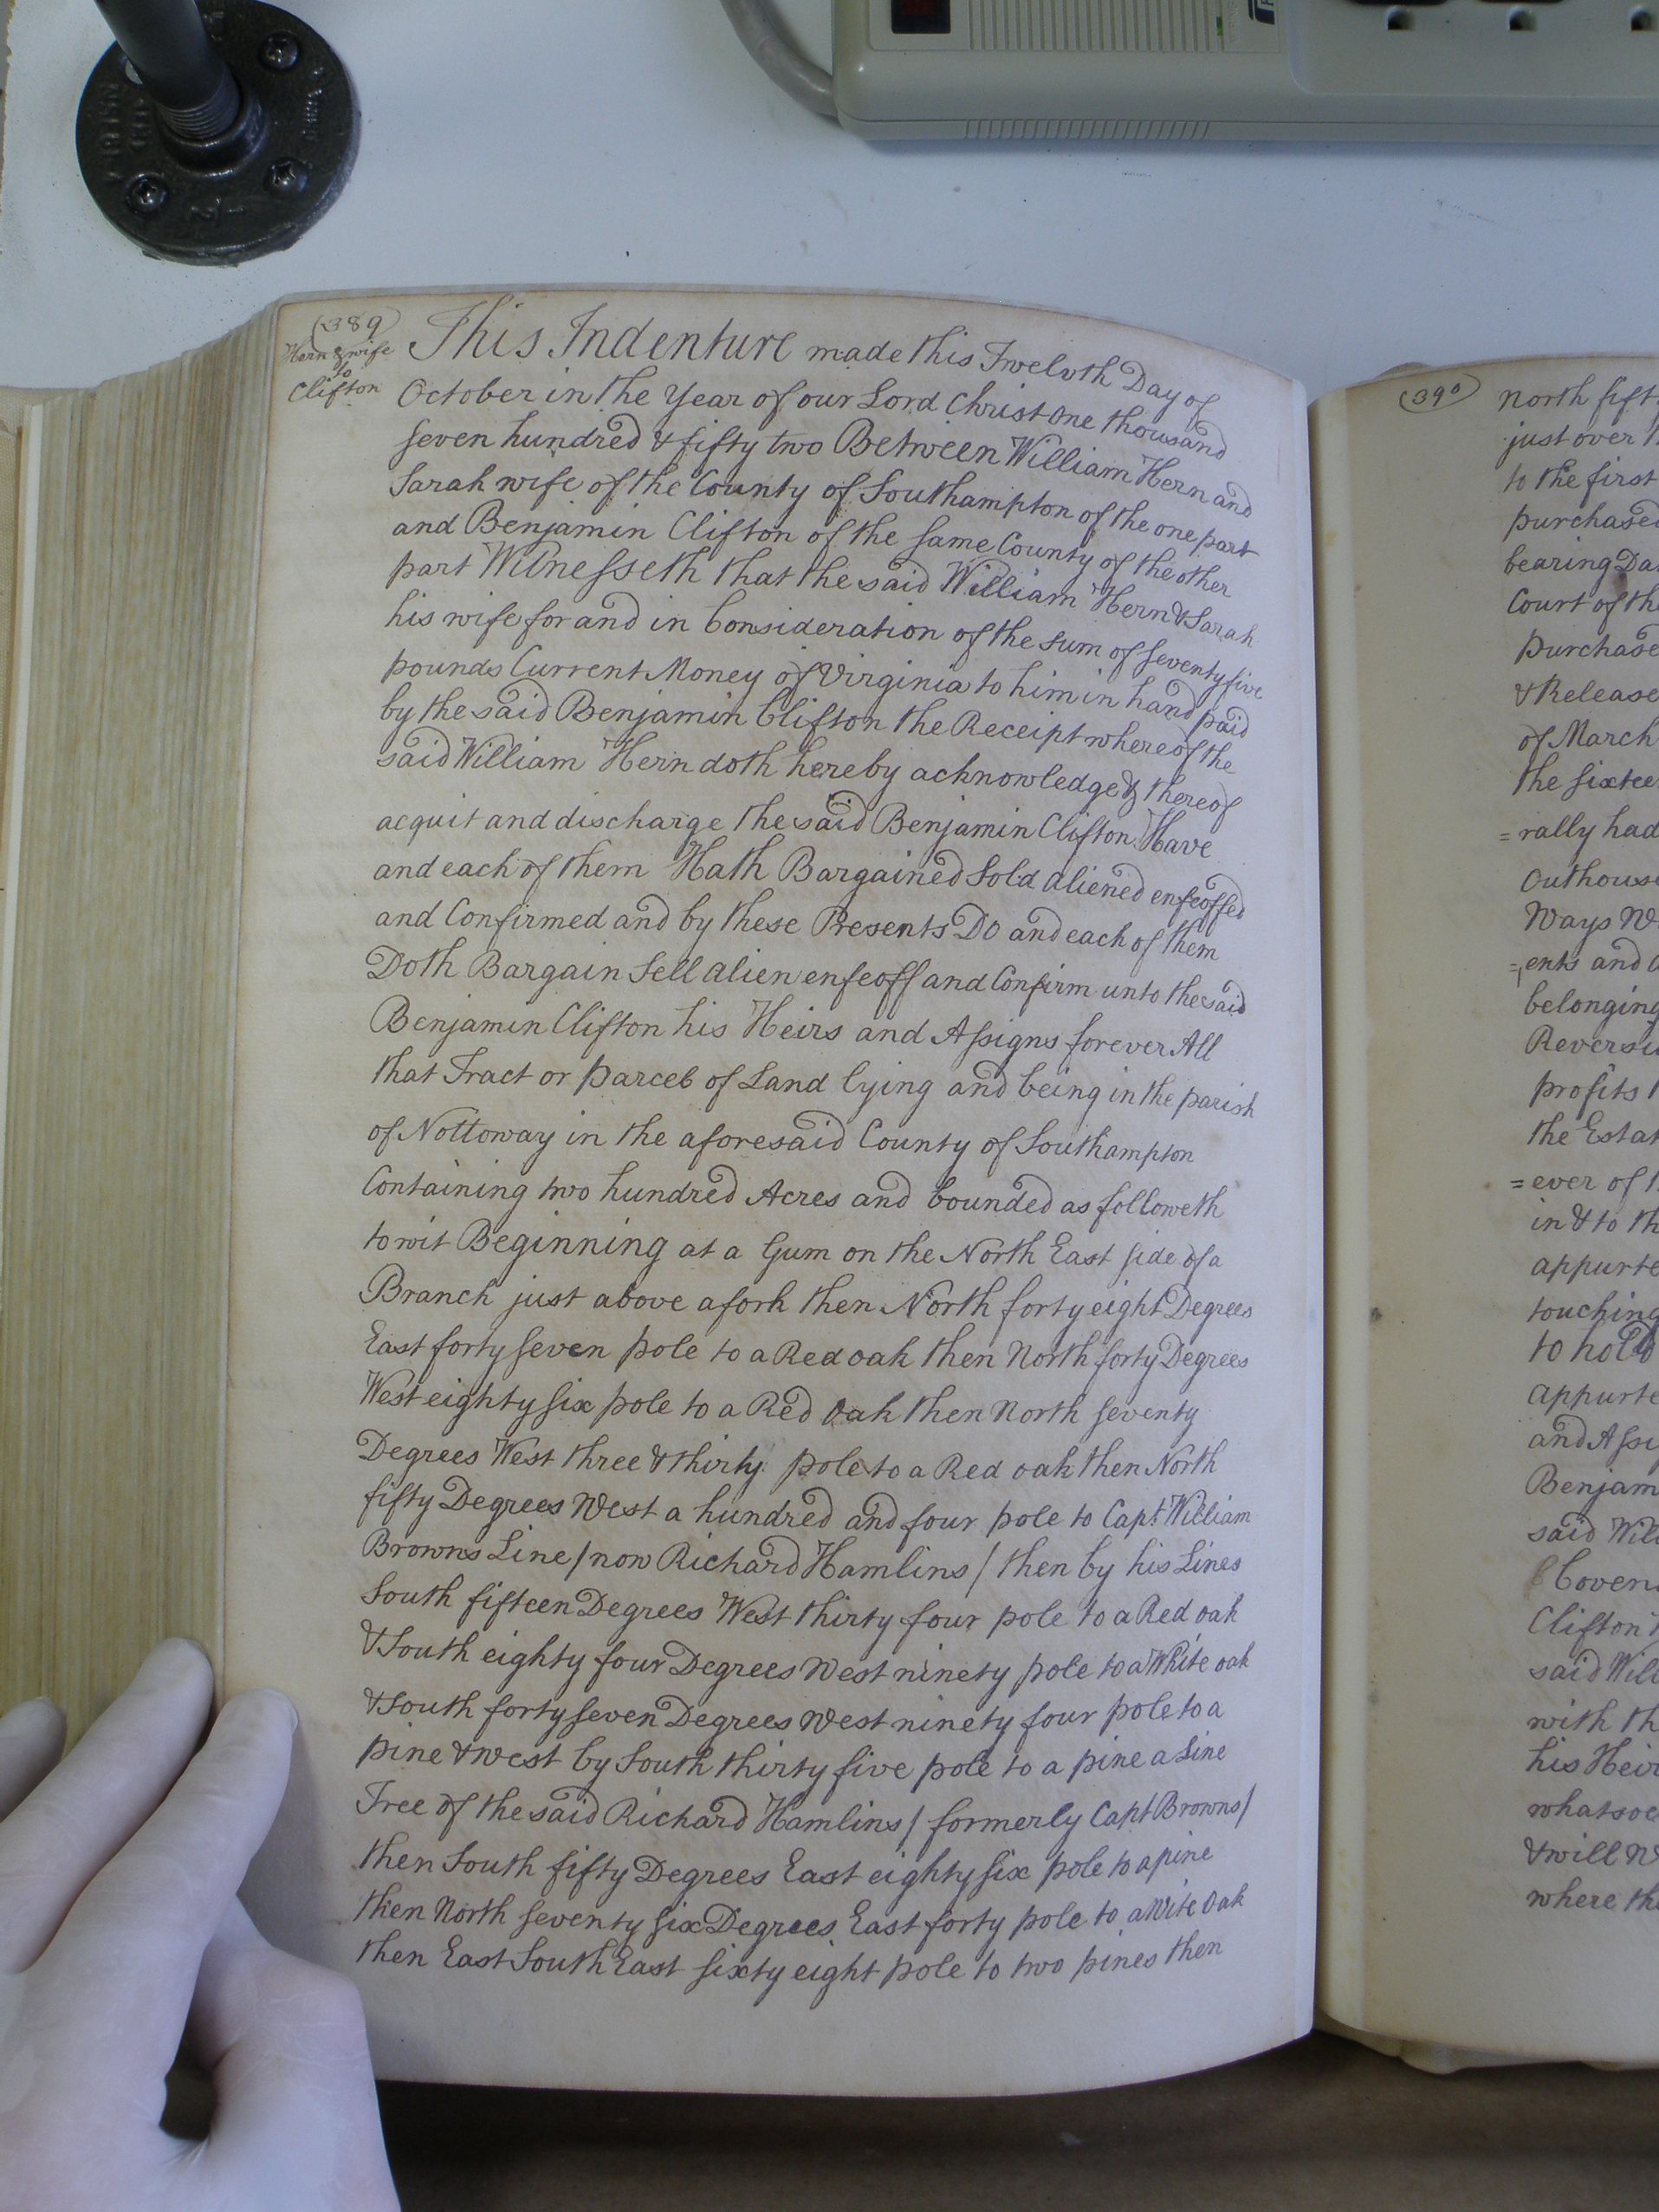 (389)
Hern & wife
to
Clifton
This Indenture made this Twelvth Day of
October in the Year of our Lord Christ One thousand
seven hundred & fifty two Between William Hern and
Sarah wife of the County of Southampton of the one part
and Benjamin Clifton of the same County of the other
part Witnesseth that the said William Hern & Sarah
his wife for and in Consideration of the sum of seventy five
pounds Current Money of Virginia to him in hand paid
by the said Benjamin Clifton the Receipt whereof the
said William Hern doth hereby acknowledge & thereof
acquit and discharge the said Benjamin Clifton Have
and each of them Hath Bargained Sold aliened enfeoffed
and Confirmed and by these Presents Do and each of them
Doth Bargain Sell alien enfeoff and Confirm unto the said
Benjamin Clifton his Heirs and Assigns forever All
that Tract or parcel of Land lying and being in the parish
of Nottoway in the aforesaid County of Southampton
Containing two hundred Acres and bounded as followeth
to wit Beginning at a Gum on the North East side of a
Branch just above a fork then North forty eight Degrees
East forty seven pole to a Red oak then North forty Degrees
West eighty six pole to a Red Oak then North seventy
Degrees West three & thirty pole to a Red oak then North
fifty Degrees West a hundred and four pole to Capt. William
Browns Line / now Richard Hamlins / then by his Lines
South fifteen Degrees West thirty four pole to a Red oak
& South eighty four Degrees West ninety pole to a White oak
& South forty seven Degrees West ninety four pole to a
pine & West by South thirty five pole to a pine a Line
Tree of the said Richard Hamlins / formerly Capt Browns /
then South fifty Degrees East eighty six pole to a pine
then North seventy six Degrees East forty pole to a Wite Oak
then East South East sixty eight pole to two pines then
(390)
north fift
just over t
to the first
purchased
bearing Da
Court of the
purchase
& Release
of March
the sixtee
=rally had
Outhouse
Ways W
=ents and a
belonging
Reversi
profits t
the Estat
=ever of t
in & to th
appurte
touching
to hold
appurte
and Assi
Benjam
said Will
Coven
Clifton
said Will
with th
his Heir
whatsoe
& will W
where the